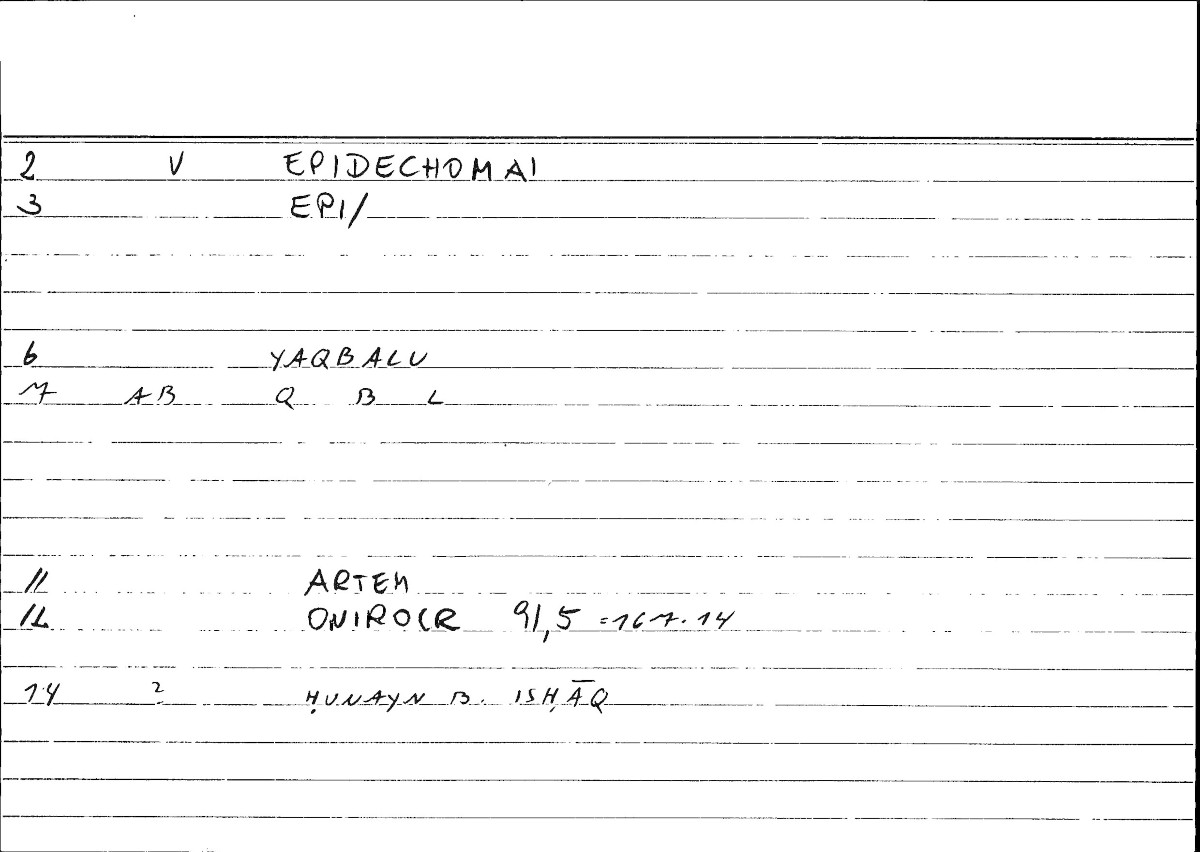 2 V EPIDECHOMAI
3 EPI/
6 YAQBALU
7 AB Q B L
11 ARTEM
12 ONIROCR 91,5 =167.14
14 ? ḤUNAYN B. ISḤĀQ